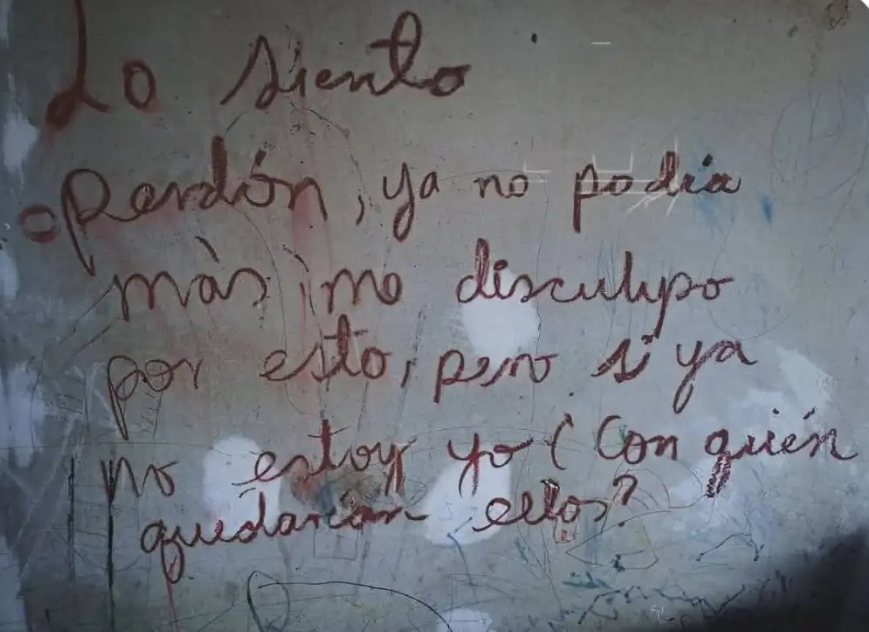 Lo siento
Perdón, ya no podía
màs, me disculpo
por esto, pero si ya
no estoy yo ¿Con quién
quedarían ellos?